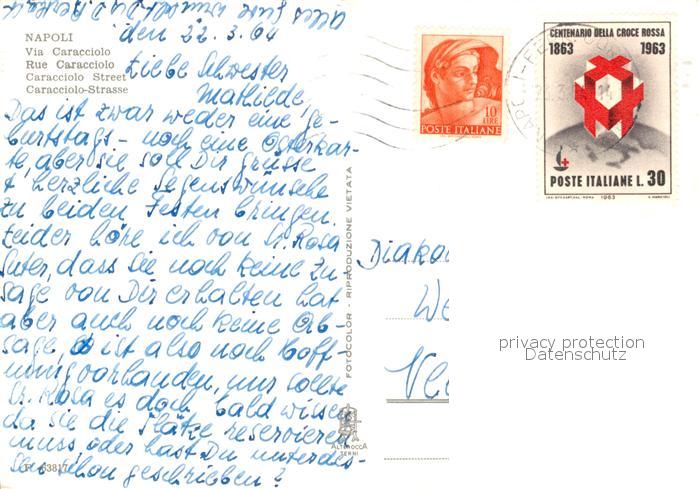 Alles Gute wünscht Dir
NAPOLI
Via Caracciolo
Rue Caracciolo
Caracciolo Street
Caracciolo-Strasse
den 22.3.64
Liebe Schwester
Mathilde,
Das ist zwar weder eine Ge-
burtstags- noch eine Osterkar-
te, aber sie soll Dir Grüsse
& herzliche Segenswünsche
zu beiden Festen bringen.
Leider höre ich von Sr. Rosa
Suter, dass Sie noch keine Zu-
sage von Dir erhalten hat
aber auch noch keine Ab-
sage, ist also noch Hoff-
nung vorhanden, nur sollte
Sr. Rosa es doch bald wissen
da sie die Plätze reservieren
muss, oder hast Du unterdes-
sen schon geschrieben?
63817
FOTOCOLOR - RIPRODUZIONE VIETATA
ALTEROCCA
TERNI
10
LIRE
POSTE ITALIANE
CENTENARIO DELLA CROCE ROSSA
1863 1963
POSTE ITALIANE L. 30
1963
NAPOLI-FERROVIA
Diako
We
privacy protection
Datenschutz